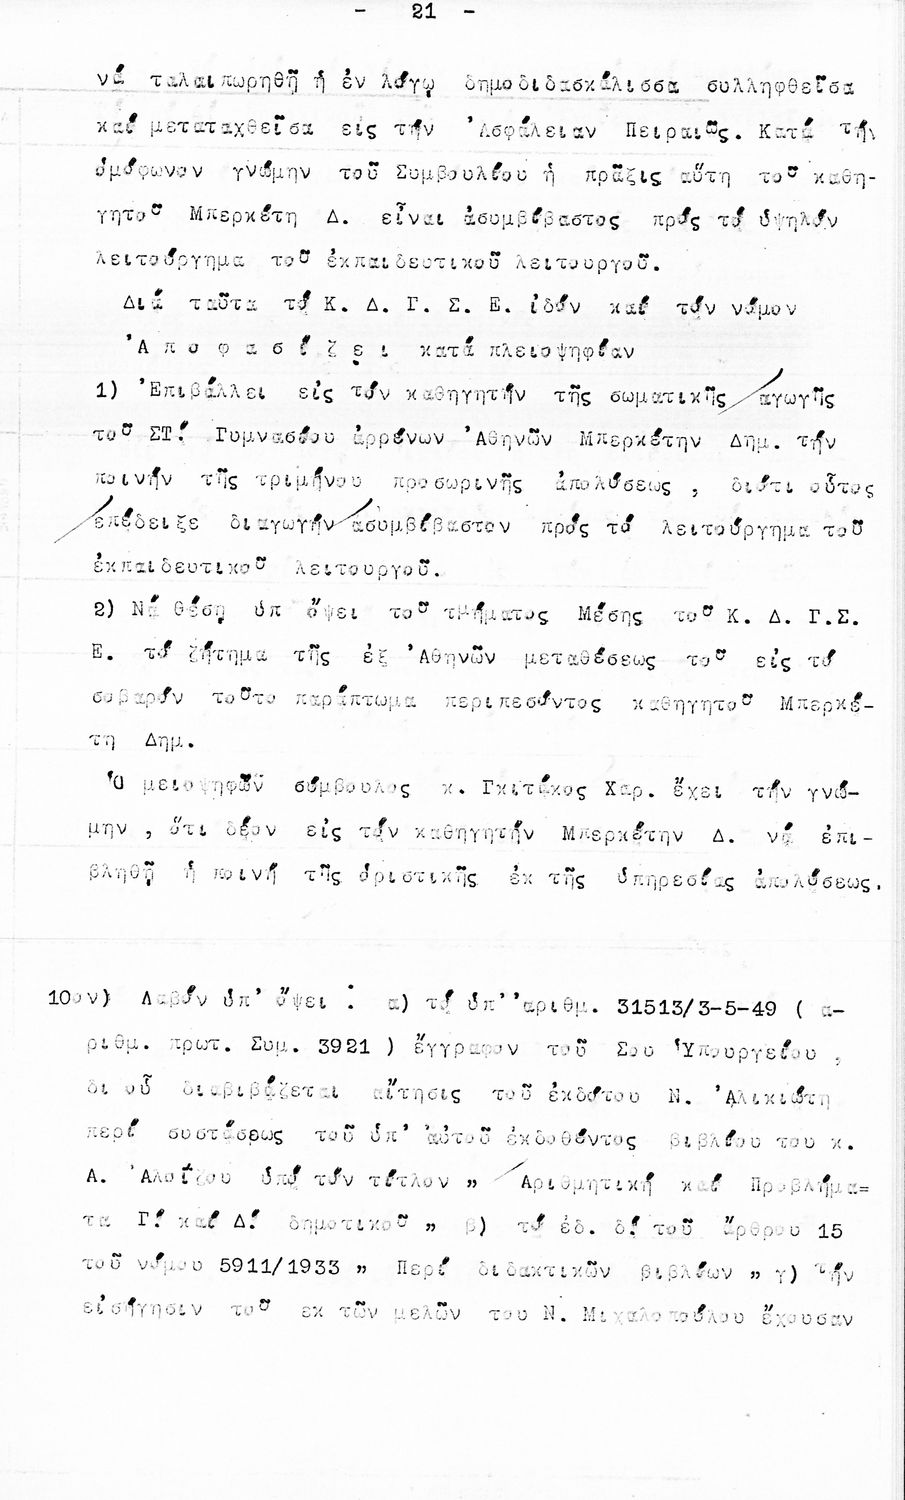 - 21 -
νά ταλαιπωρηθῇ ἡ ἐν λόγῳ δημοδιδασκάλισσα συλληφθεῖσα
καί μεταταχθεῖσα εις τήν 'Ασφάλειαν Πειραιῶς. Κατά τήν
ὁμόφωνον γνώμην τοῦ Συμβουλίου ἡ πρᾶξις αὕτη τοῦ καθη-
γητοῦ Μπερκέτη Δ. εἶναι ἀσυμβίβαστος πρός τό ὑψηλόν
λειτούργημα τοῦ ἐκπαιδευτικοῦ λειτουργοῦ.
Διά ταῦτα τό Κ. Δ. Γ. Σ. Ε. ἰδόν καί τόν νόμον
'Α π ο φ α σ ί ζ ε ι κατά πλειοψηφίαν
1) 'Επιβάλλει εἰς τόν καθηγητήν τῆς σωματικῆς αγωγῆς
τοῦ ΣΤ! Γυμνασίου ἀρρένων 'Αθηνῶν Μπερκέτην Δημ. τήν
ποινήν τῆς τριμήνου προσωρινῆς ἀπολύσεως , διότι οὗτος
επέδειξε διαγωγήν ασυμβίβαστον πρός τό λειτούργημα τοῦ
ἐκπαιδευτικοῦ λειτουργοῦ.
2) Νά θέσῃ ὑπ ὄψει τοῦ τμήματος Μέσης τοῦ Κ. Δ. Γ.Σ.
Ε. τό ζήτημα τῆς ἐξ 'Αθηνῶν μεταθέσεως τοῦ εἰς τό
σοβαρόν τοῦτο παράπτωμα περιπεσόντος καθηγητοῦ Μπερκέ-
τη Δημ.
'Ο μειοψηφῶν σύμβουλος κ. Γκιτάκος Χαρ. ἔχει τήν γνώ-
μην , ὅτι δέον εἰς τόν καθηγητήν Μπερκέτην Δ. νά ἐπι-
βληθῇ ἡ ποινή τῆς ὁριστικῆς ἐκ τῆς ὑπηρεσίας ἀπολύσεως.
10ον) Λαβόν ὑπ' ὄψει : α) τό ὑπ' 'αριθμ. 31513/3-5-49 ( α-
ριθμ. πρωτ. Συμ. 3921 ) ἔγγραφον τοῦ Σου 'Υπουργείου ,
δι οὗ διαβιβάζεται αἴτησις τοῦ ἐκδότου Ν. 'Αλικιώτη
περί συστάσεως τοῦ ὑπ' αὐτοῦ ἐκδοθέντος βιβλίου του κ.
Α. 'Αλοΐζου ὑπό τόν τίτλον „ Αριθμητική καί Προβλήμα=
τα Γ! καί Δ! δημοτικοῦ „ β) τό ἐδ. δ! τοῦ ἄρθρου 15
τοῦ νόμου 5911/1933 „ Περί διδακτικῶν βιβλίων „ γ) τήν
εἰσήγησιν τοῦ εκ τῶν μελῶν του Ν. Μιχαλοπούλου ἔχουσαν